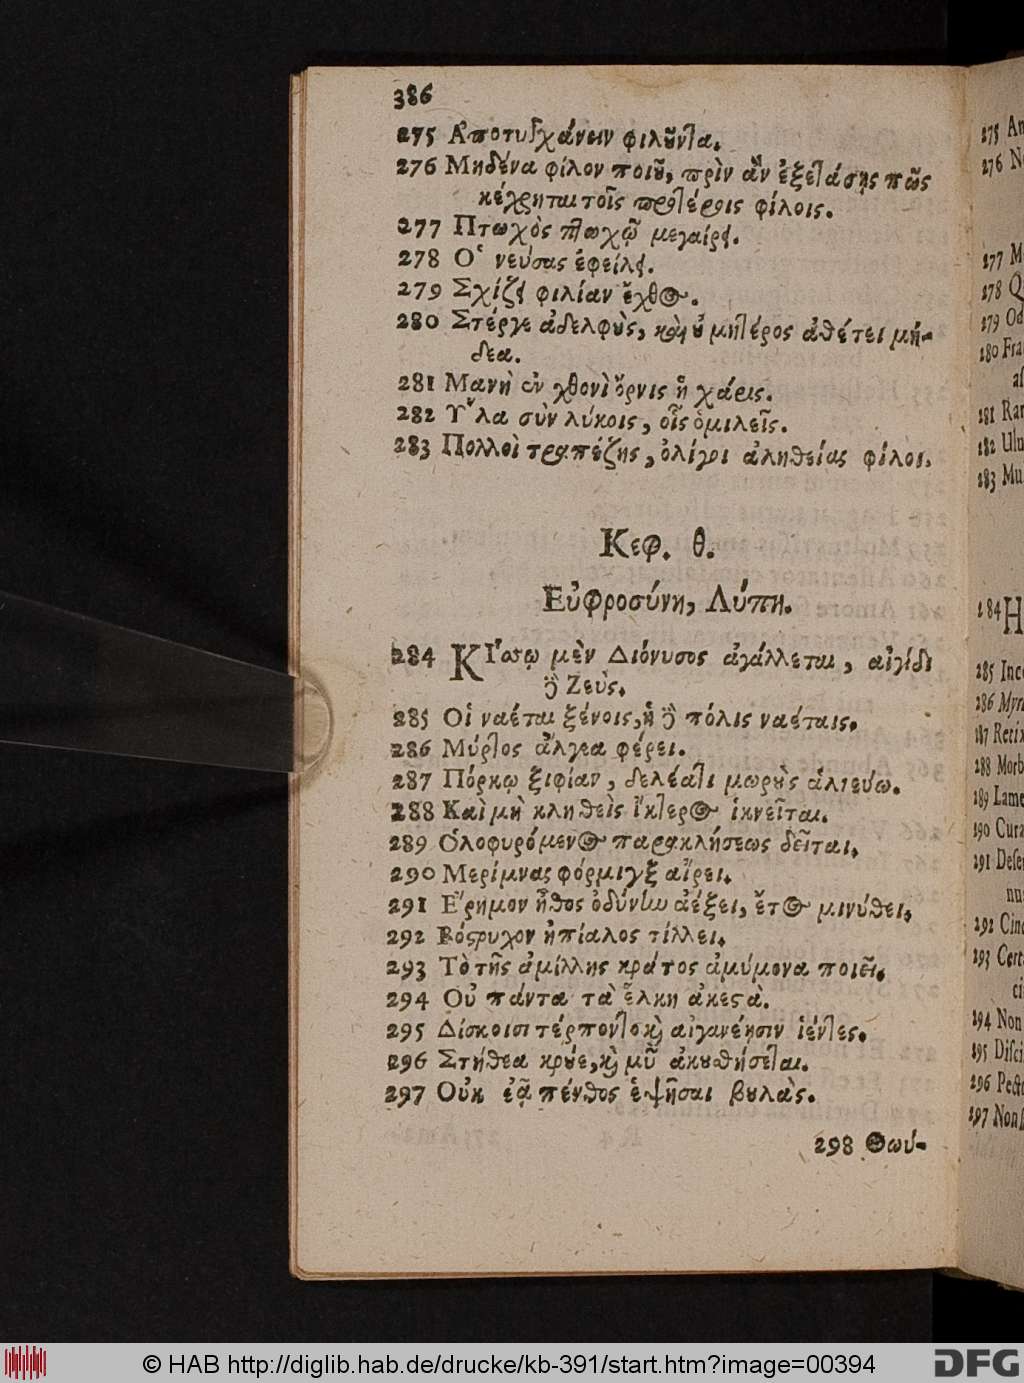 386
275 Ἀποτυγχάνειν φιλοῦντα.
276 Μηδένα φίλον ποιοῦ, πρὶν ἂν ἐξετάσῃς πῶς
κέχρηται τοῖς προτέροις φίλοις.
277 Πτωχὸς πτωχῷ μεγαίρει.
278 Ὁ νεύσας ἐφείλει.
279 Σχίζει φιλίαν ἔχθος.
280 Στέργε ἀδελφοὺς, καὶ μητέρος ἀθέτει μή-
δεα.
281 Μανὴ ἐν χθονὶ ὄρνις ἢ χάρις.
282 Ὕλα σὺν λύκοις, οἷς ὁμιλεῖς.
283 Πολλοὶ τραπέζης, ὀλίγοι ἀληθείας φίλοι.
Κεφ. θ.
Εὐφροσύνη, Λύπη.
284 ΚΙσσῳ μὲν Διόνυσος ἀγάλλεται, αἰγίδι
δὲ Ζεὺς.
285 Οἱ ναέται ξένοις, ἡ δὲ πόλις ναέταις.
286 Μύρτος ἄλγεα φέρει.
287 Πόρκῳ ξιφίαν, δελέατι μωροὺς ἁλιεύω.
288 Καὶ μὴ κληθεὶς ἴκτερος ἱκνεῖται.
289 Ὀλοφυρόμενος παρακλήσεως δεῖται.
290 Μερίμνας φόρμιγξ αἴρει.
291 Ἔρημον ἦθος ὀδύνην ἀέξει, ἔτος μινύθει.
292 Βόστρυχον ἠπίαλος τίλλει.
293 Τὸ τῆς ἁμίλλης κράτος ἀμύμονα ποιεῖ.
294 Οὐ πάντα τὰ ἕλκη ἀκεστὰ.
295 Δίσκοισι τέρποντο καὶ αἰγανέῃσιν ἱέντες.
296 Στήθεα κρούε, καὶ μῦ ἀκουθήσεται.
297 Οὐκ ἐᾷ πένθος ἑψῆσαι βουλὰς.
298 Θωύ-
© HAB http://diglib.hab.de/drucke/kb-391/start.htm?image=00394
DFG
275 An
276 N
277 M
278 Q
279 Od
280 Fra
281 Rar
282 Ulu
283 Mu
284 H
285 Inc
286 Myr
287 Reti
288 Morb
289 Lame
290 Cura
291 Dese
nu
292 Cinc
293 Cert
ci
294 Non
295 Disci
296 Pect
297 Non